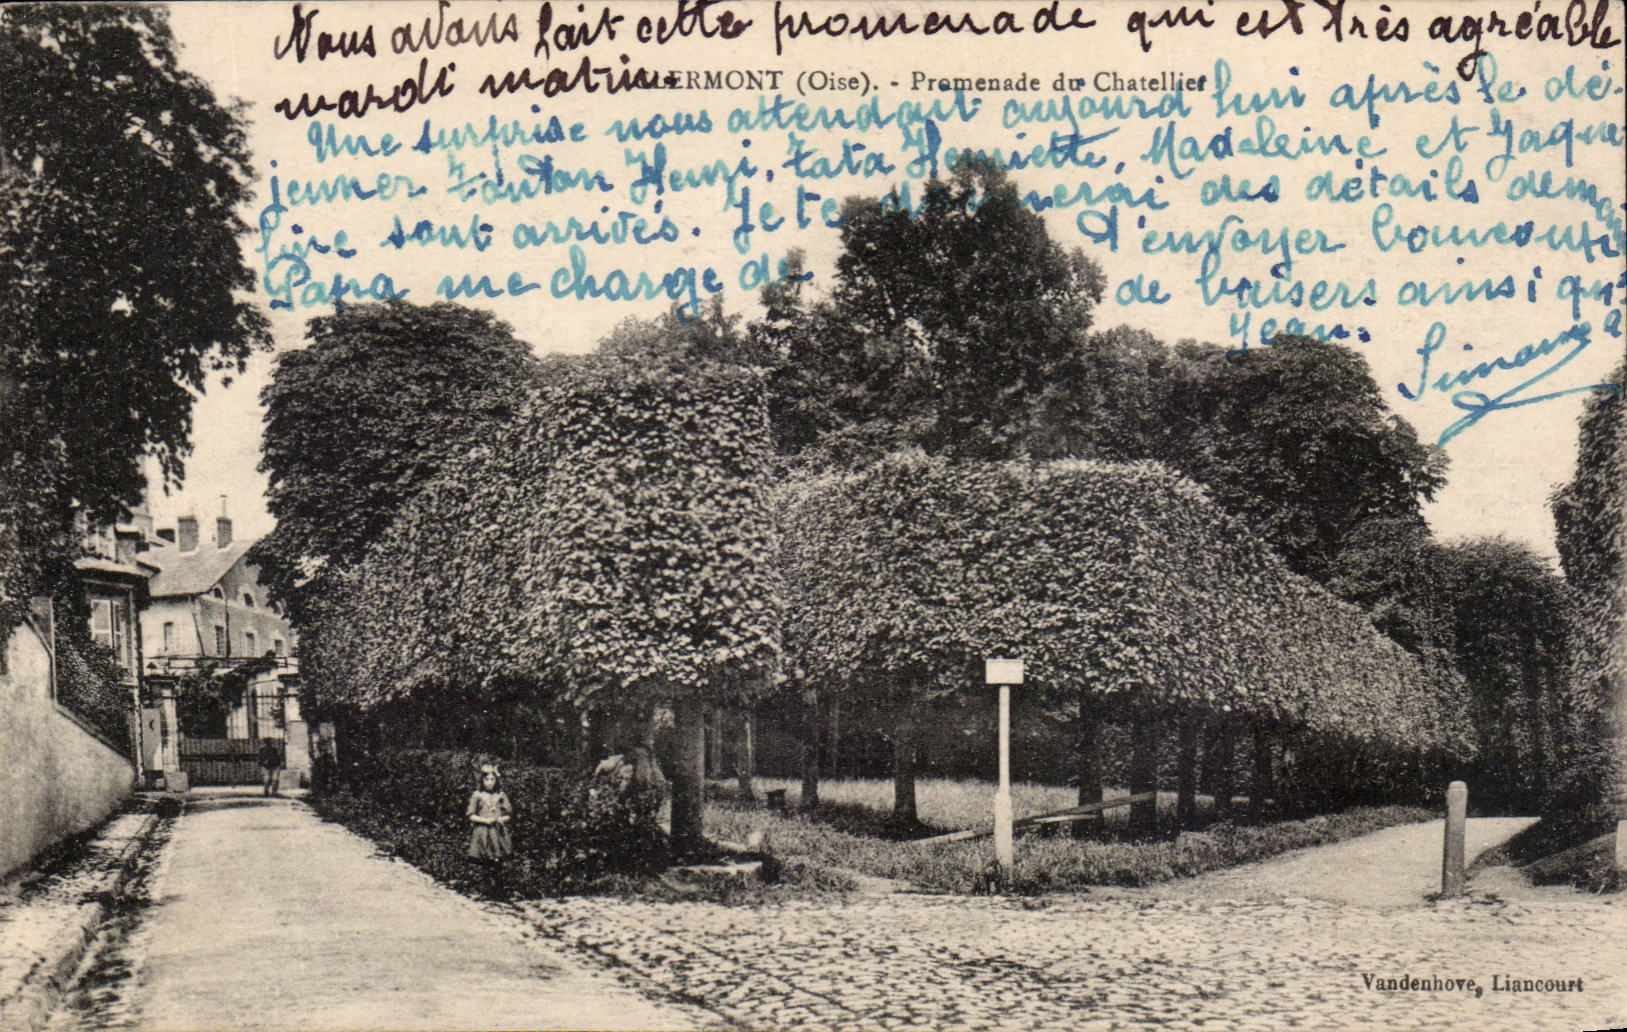 Nous avons fait cette promenade qui est très agréable
mardi matin.
CLERMONT (Oise). - Promenade du Chatellier
Une surprise nous attendait aujourd'hui après le dé-
jeuner Tonton Henri, Tata Henriette, Madeleine et Jaque
line sont arrivés. Je te donnerai des détails demain
Papa me charge de t'envoyer beaucoup
de baisers ainsi que
Jean.
Simone
Vandenhove, Liancourt